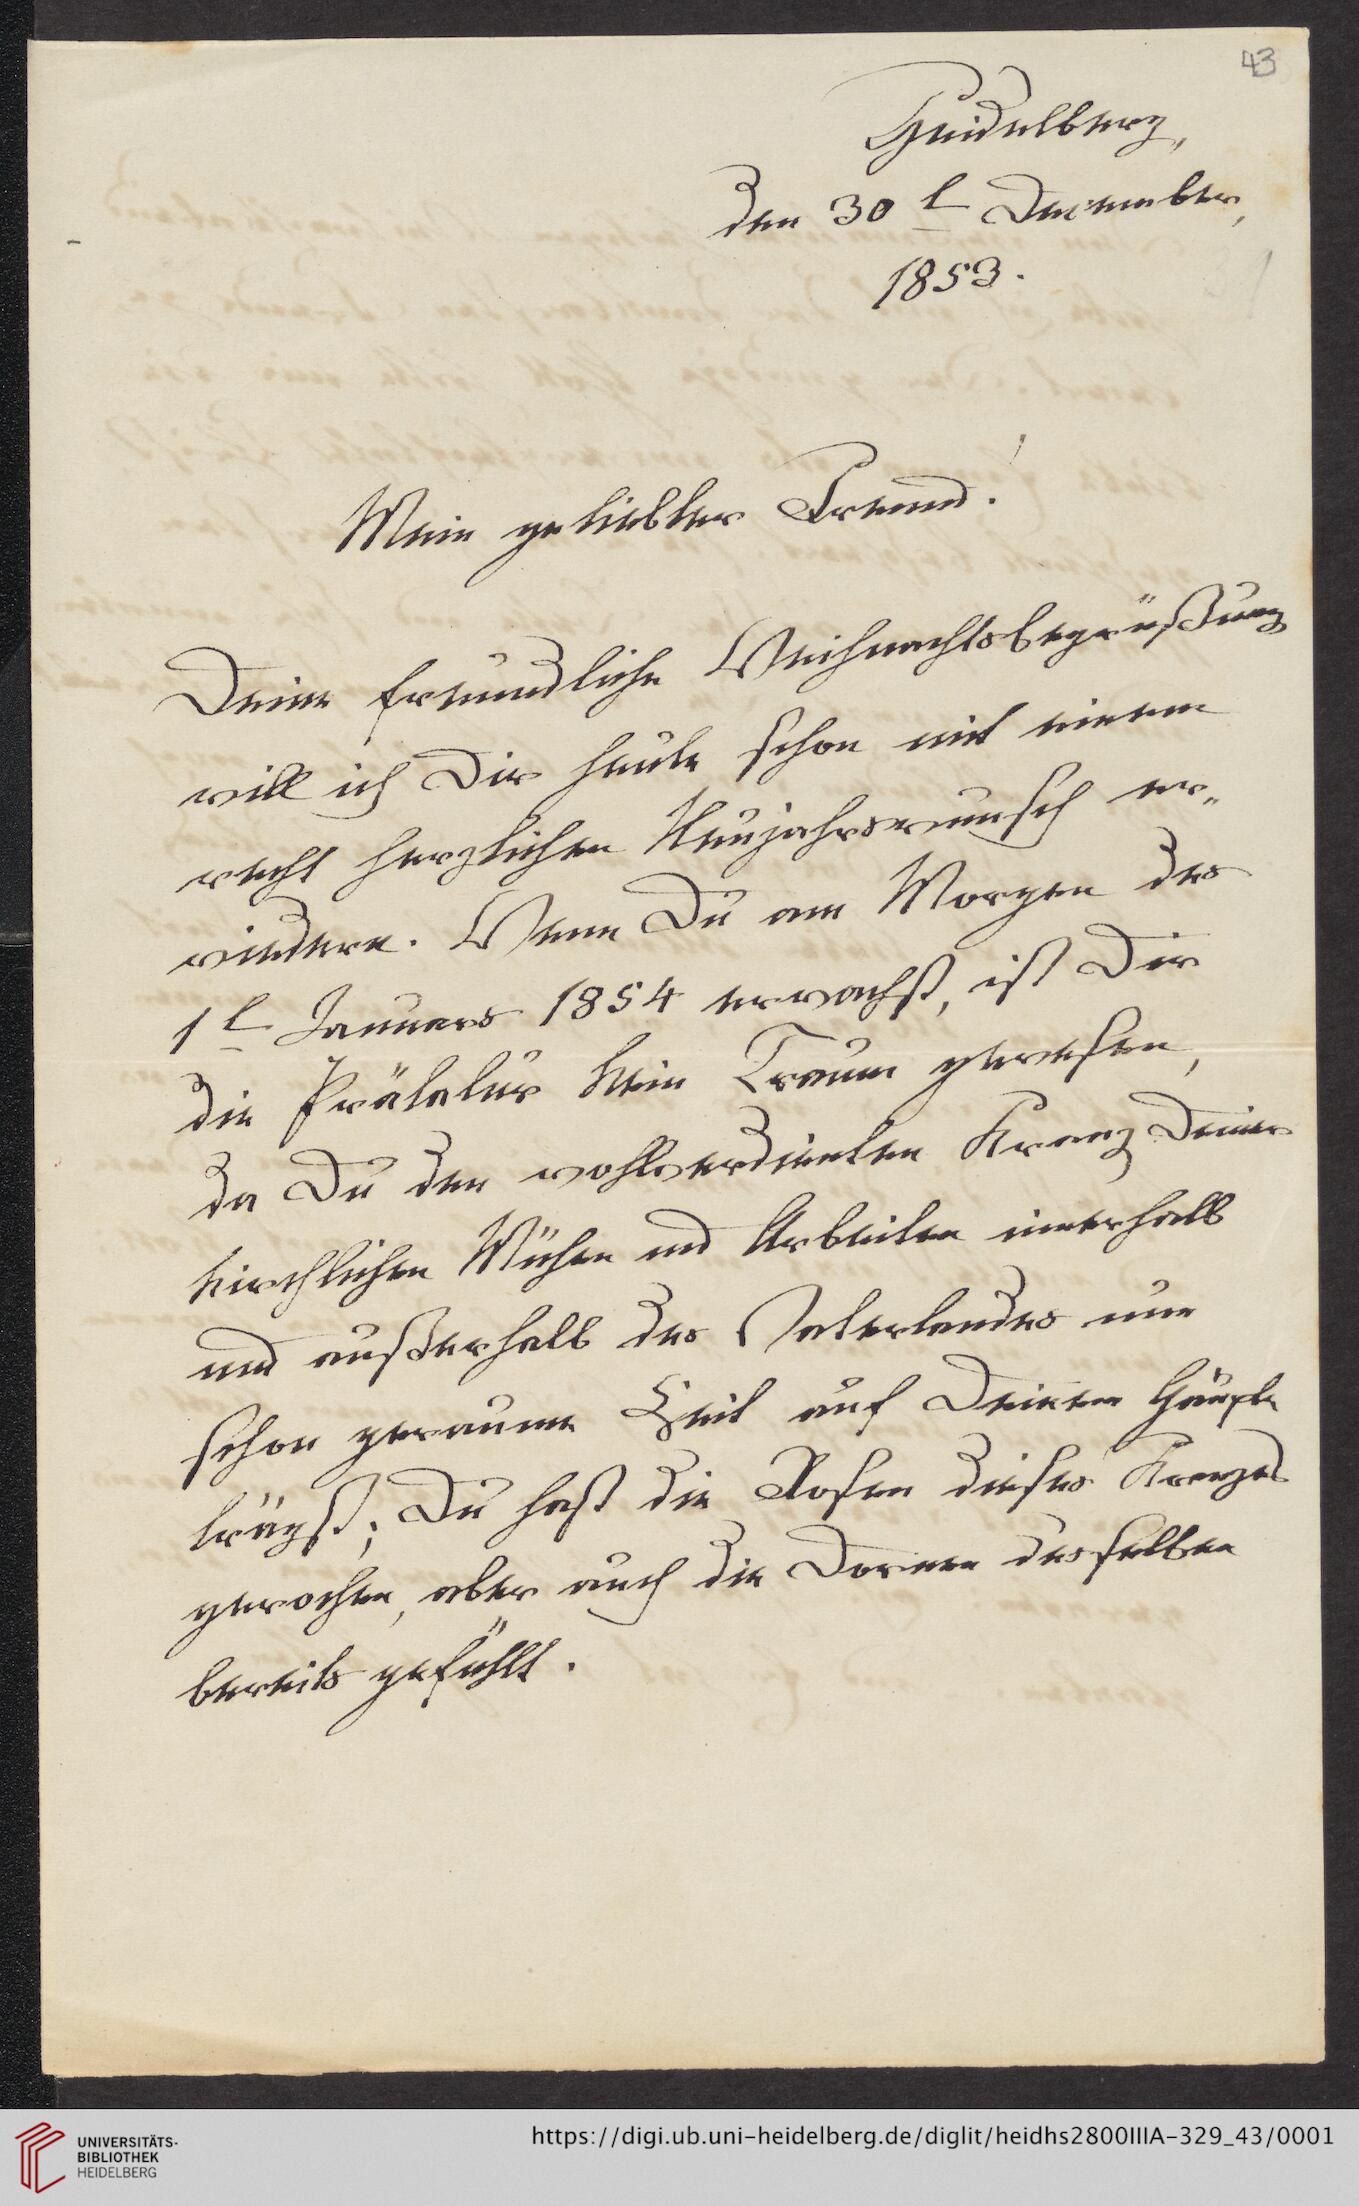 43
Heidelberg,
den 30t December,
1853.
Mein geliebter Freund!
Deine freundliche Weihnachtsbegrüßung
will ich Dir heute schon mit einem
recht herzlichen Neujahrswunsch er-
wiedern. Wenn Du am Morgen des
1t Januars 1854 erwachst, ist Dir
die Prälatur kein Traum gewesen,
da Du den wohlverdienten Kranz Deiner
kirchlichen Mühen und Arbeiten innerhalb
und außerhalb des Vaterlandes nun
schon geraume Zeit auf Deinem Haupte
trägst; Du hast die Rosen dieses Kranzes
gerochen, aber auch die Dornen desselben
bereits gefühlt.
UNIVERSITÄTS-
BIBLIOTHEK
HEIDELBERG
https://digi.ub.uni-heidelberg.de/diglit/heidhs2800IIIA-329_43/0001